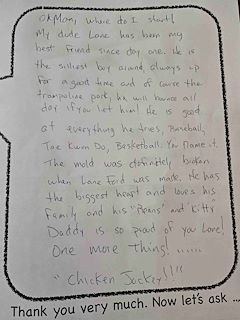 Oh Man, where do I start!
My dude Lane has been my
best friend since day one. He is
the silliest boy around, always up
for a good time and of course the
trampoline park, he will bounce all
day if you let him! He is good
at everything he tries, Baseball,
Tae Kwon Do, Basketball. You name it.
The mold was definitely broken
when Lane Ford was made. He has
the biggest heart and loves his
family and his "Beans" and "Kitty"
Daddy is so proud of you Lane!
One more Thing! ......
"Chicken Jockey!!"
Thank you very much. Now let's ask ...